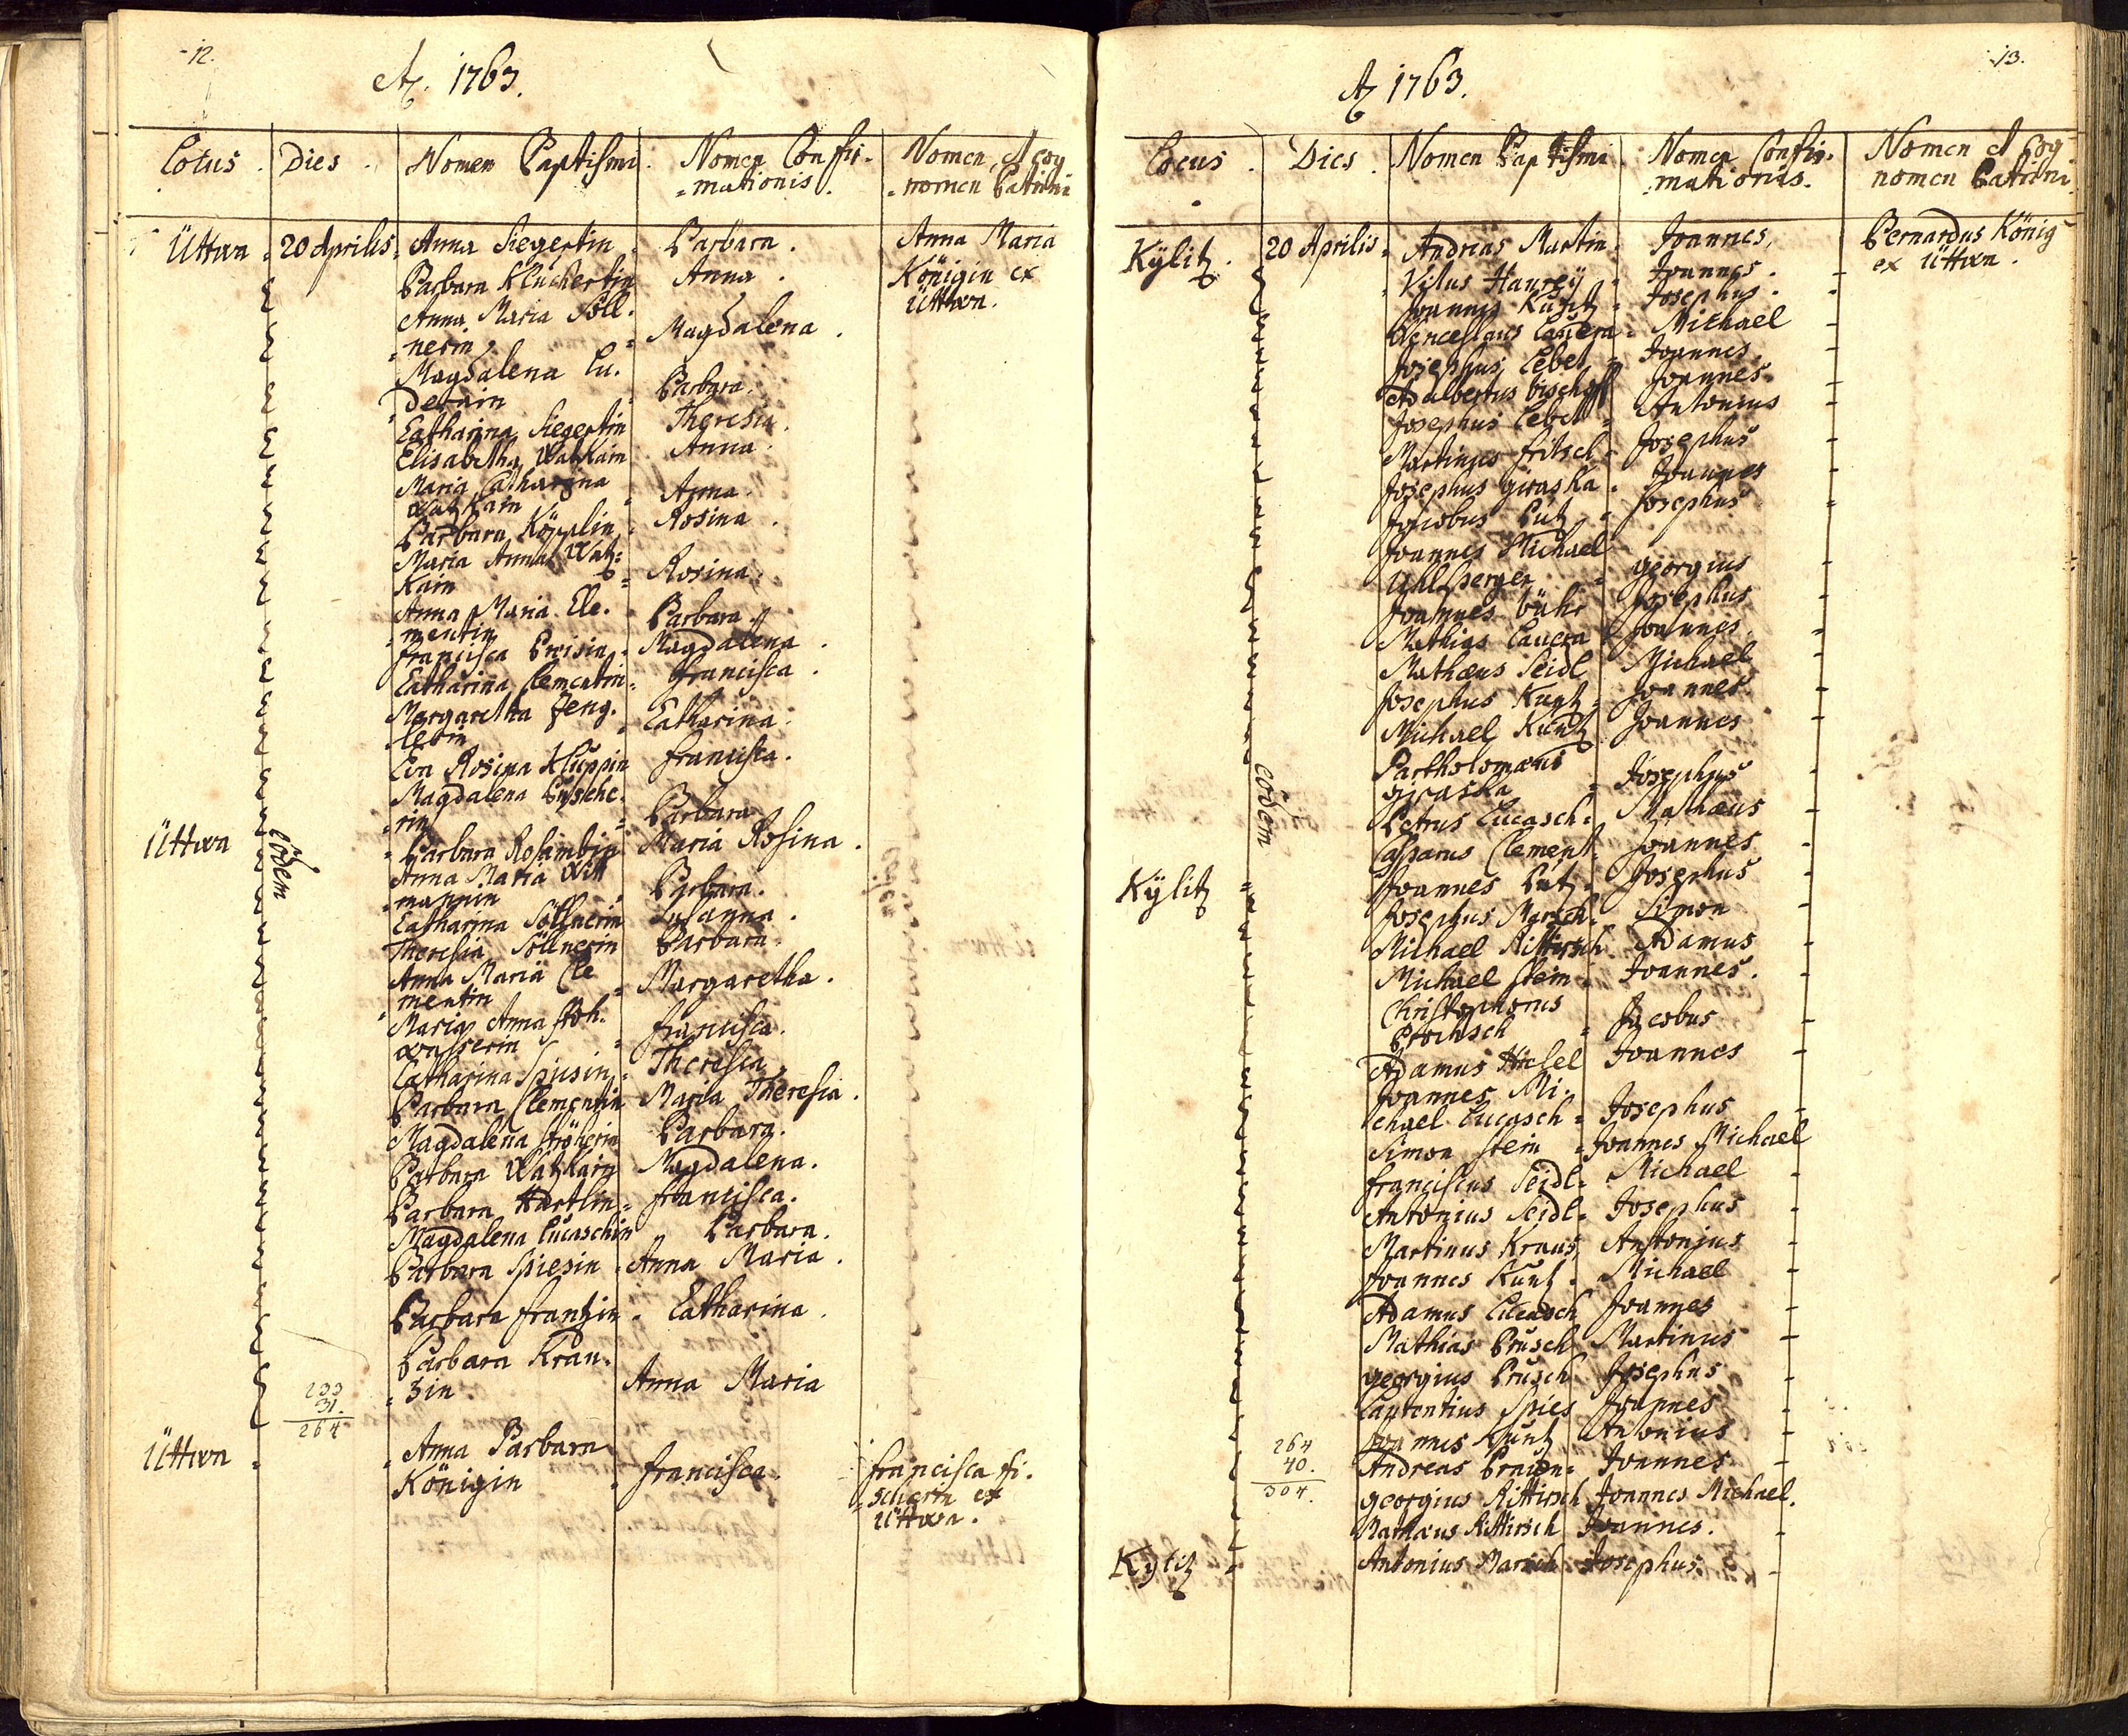 12.
Aõ. 1763.
Locus. Dies. Nomen Baptismi. Nomen Confir- Nomen, et Cog
-mationis. -nomen Patrini
Üttwa 20 Aprilis. Anna Siegertin Barbara. Anna Maria
Barbara Anna. Königin ex
Anna Maria Söll- Üttwa.
-nerin Magdalena.
Magdalena Lu-
-derin Barbara.
Catharina Siegertin Theresia.
Elisabetha Watzkain Anna.
Maria Catharina
Watzkain Anna.
Barbara Köpplin Rosina.
Maria Anna Watz-
kain Rosina.
Anna Maria Cle-
-mentin Barbara.
Francisca Magdalena.
Catharina Clementin Francisca.
Margaretha Zeng-
-lerin Catharina.
Eva Rosina Francisca.
Magdalena
-rin Barbara
Üttwa eodem Barbara Maria Rosina.
Anna Maria Witt
-mannin Barbara.
Catharina Söllnerin Susanna.
Theresia Söllnerin Barbara.
Anna Maria Cle
-mentin Margaretha.
Maria Anna Roh-
wasserin Francisca.
Catharina Spiesin Theresia.
Barbara Clementin Maria Theresia.
Magdalena Barbara.
Barbara Watzkain Magdalena.
Barbara Hartlin Francisca.
Magdalena Lucaschin Barbara.
Barbara Spiesin Anna Maria.
Barbara Frantzin Catharina.
Barbara Kran-
-zin. Anna Maria
233
31.
264
Üttwa Anna Barbara
Königin Francisca. Francisca Fi-
-scherin ex
Üttwa.
13.
Aõ 1763.
Locus. Dies. Nomen Baptismi Nomen Confir- Nomen et Cog
mationis. nomen Patrini
Kÿlitz. 20 Aprilis. Andreas Martin Joannes. Bernardus König
Vitus Joannes. ex Üttwa.
Joannes Kuntz Josephus.
Wenceslaus Lauera Michael
Josephus Lebel Joannes.
Adalbertus Bischoff Joannes.
Josephus Lebel Antonius
Martinus Fritsch Josephus
Josephus Giraska Joannes
Jacobus Putz Josephus
Joannes Michael
Uhlsperger Georgius
Joannes Bühr Josephus
Mathias Lauera Joannes.
Mathæus Seidl Michael
Josephus Kuntz Joannes
Michael Kuntz Joannes
Bartholomæus
Giraska Josephus
eodem Petrus Lucasch Mathæus
Casparus Clement Joannes
Kÿlitz Joannes Putz Josephus
Josephus Marsch Simon
Michael Rittirsch Adamus
Michael Stein Joannes.
Christophorus
Jacobus
Adamus Joannes
Joannes Mi-
chael Lucasch Josephus
Simon Stein Joannes Michael
Franciscus Seidl Michael
Antonius Seidl Josephus
Martinus Kraus Antonius
Joannes Kuntz Michael
Adamus Lucasch Joannes
Mathias Prusch Martinus
Georgius Prusch Josephus
Laurentius Spies Joannes
Joannes Kuntz Antonius
Andreas Joannes
264
40.
304.
Georgius Rittirsch Joannes Michael.
Mathæus Rittirsch Joannes.
Kÿlitz Antonius Marsch Josephus.